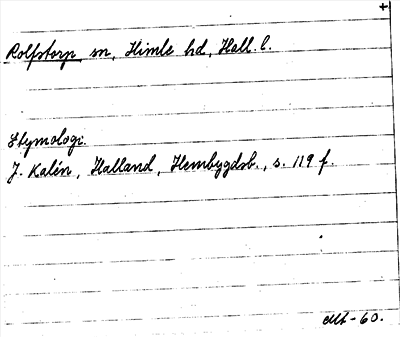 +
Rolfstorp sn, Himle hd, Hall. l.
Etymologi.
J. Kalén, Halland, Hembygdsb., s. 119 f.
-60.